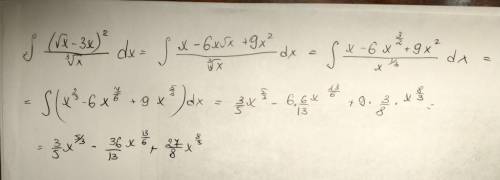 ∫ (√x - 3x)² / ∛x dx = ∫ (x - 6x√x + 9x²) / ∛x dx = ∫ (x - 6x^(3/2) + 9x²) / x^(1/3) dx =
= ∫ (x^(2/3) - 6x^(7/6) + 9x^(5/3)) dx = 3/5 x^(5/3) - 6·6/13 x^(13/6) + 9·3/8·x^(8/3) =
= 3/5 x^(5/3) - 36/13 x^(13/6) + 27/8 x^(8/3)